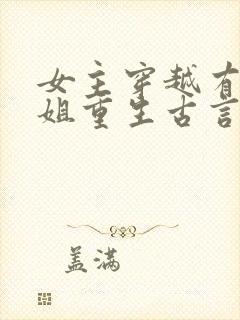 女主穿越有
姐重生古言
盖满